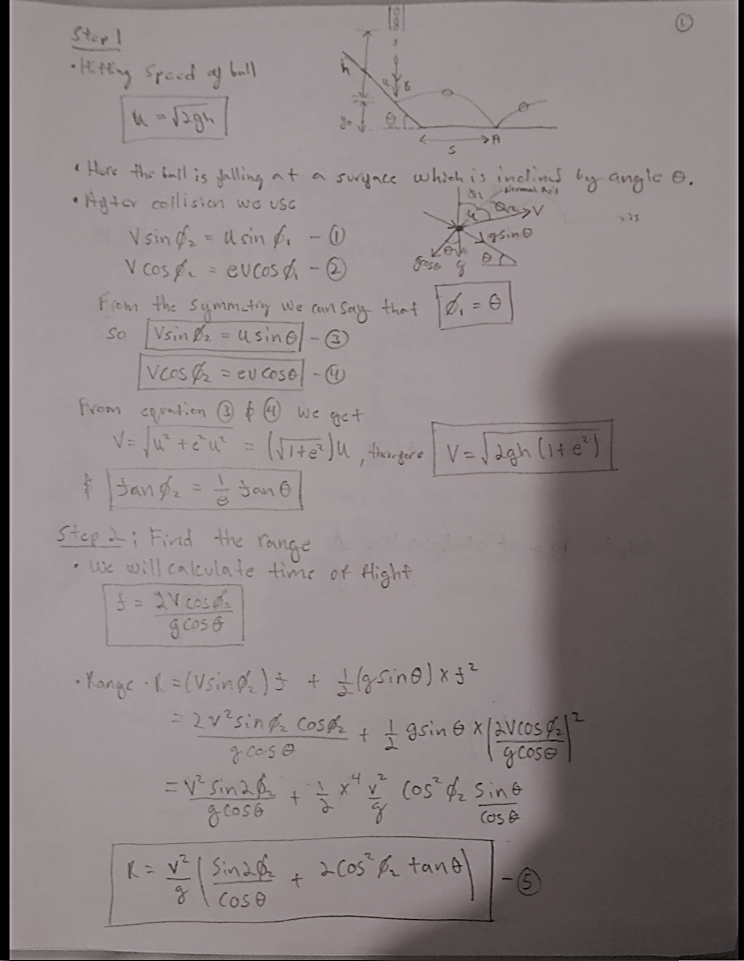 ①
Step 1
• Hitting speed of ball
u = √2gh
h
θ
S
A
• Here the ball is falling at a surface which is inclined by angle θ.
Normal axis
• After collision we use
V
V sin ϕ₂ = u sin ϕ₁ - ①
g sinθ
V cos ϕ₂ = eu cos ϕ₁ - ②
g cosθ g θ
From the symmetry we can say that ϕ₁ = θ
so V sin ϕ₂ = u sin θ - ③
V cos ϕ₂ = eu cos θ - ④
From equation ③ & ④ we get
V = √u² + e²u² = (√1+e²)u, therefore V = √2gh (1+e²)
& tan ϕ₂ = 1/e tan θ
Step 2; Find the range
• We will calculate time of flight
t = 2V cos ϕ₂ / g cos θ
• Range · R = (V sin ϕ₂) t + 1/2 (g sin θ) x t²
= 2v² sin ϕ₂ cos ϕ₂ / g cos θ + 1/2 g sin θ x (2V cos ϕ₂ / g cos θ)²
= v² sin 2ϕ₂ / g cos θ + 1/2 x 4 v²/g cos² ϕ₂ sin θ / cos θ
R = v²/g (sin 2ϕ₂ / cos θ + 2 cos² ϕ₂ tan θ) - ⑤